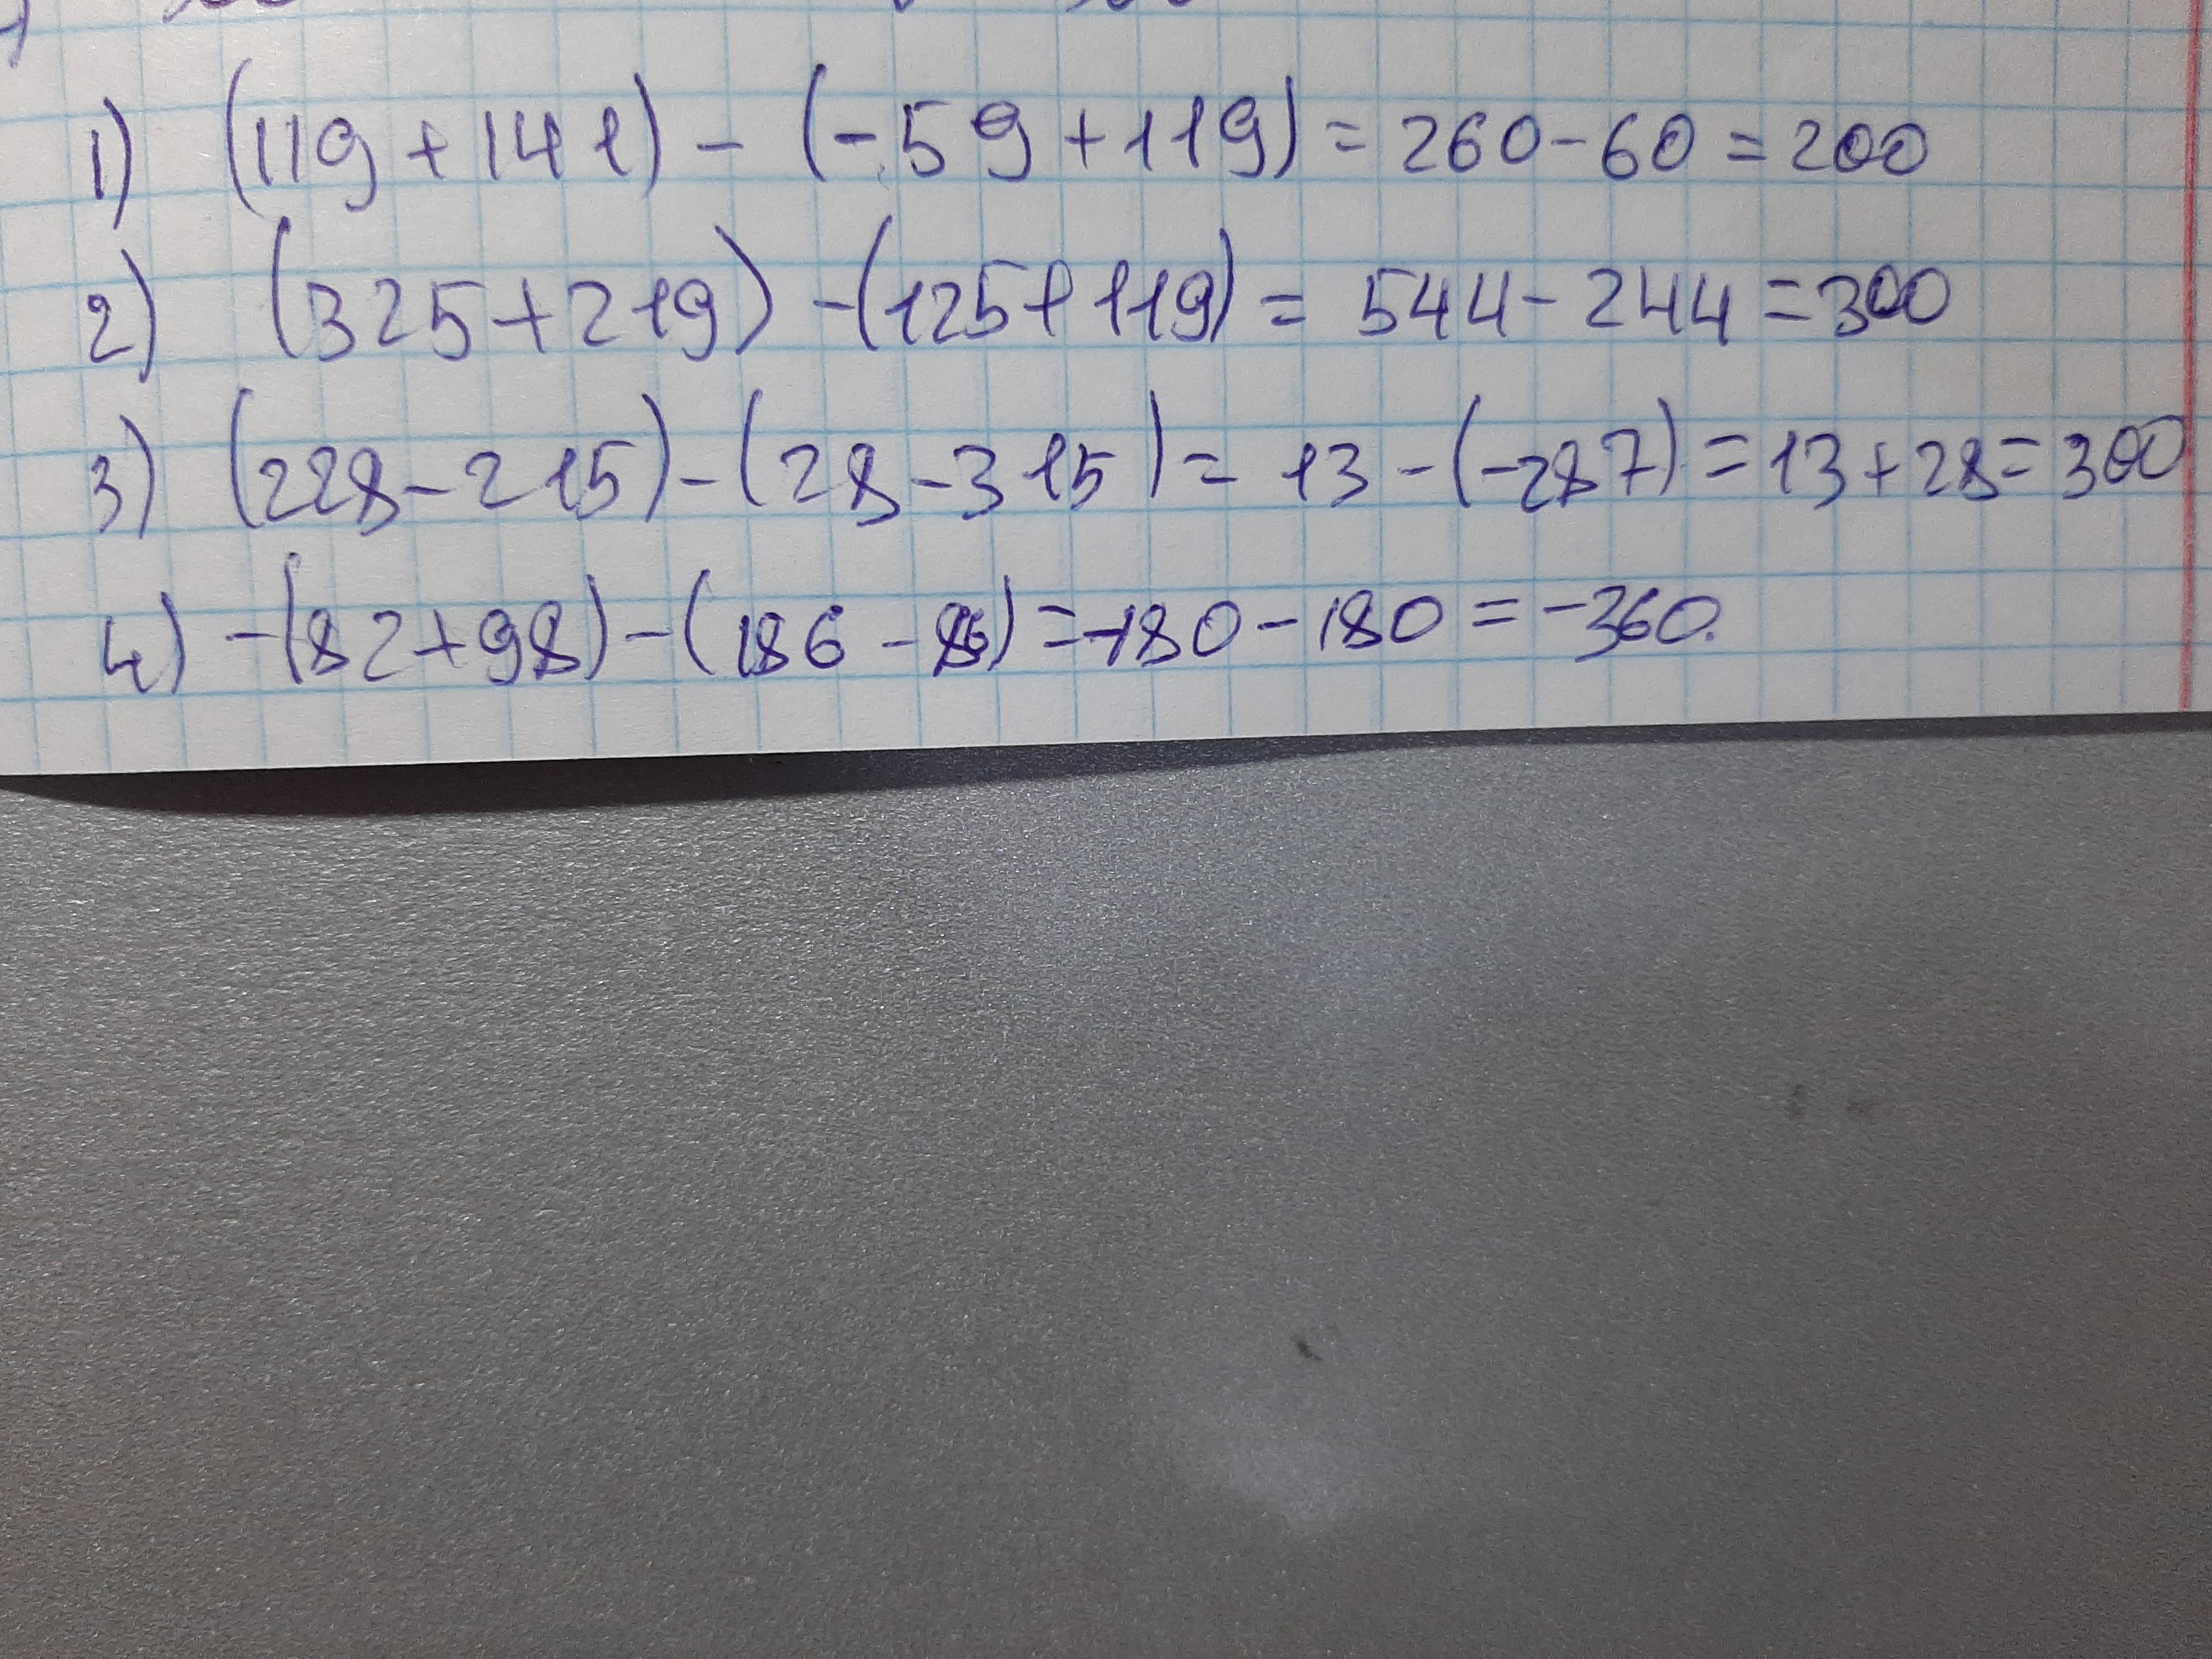 1) (119+141) - (-59+119) = 260-60 = 200
2) (325+219) - (125+119) = 544-244 = 300
3) (228-215) - (28-315) = 13-(-287) = 13+28= 300
4) -(82+98) - (186-86) =-180-180 = -360.